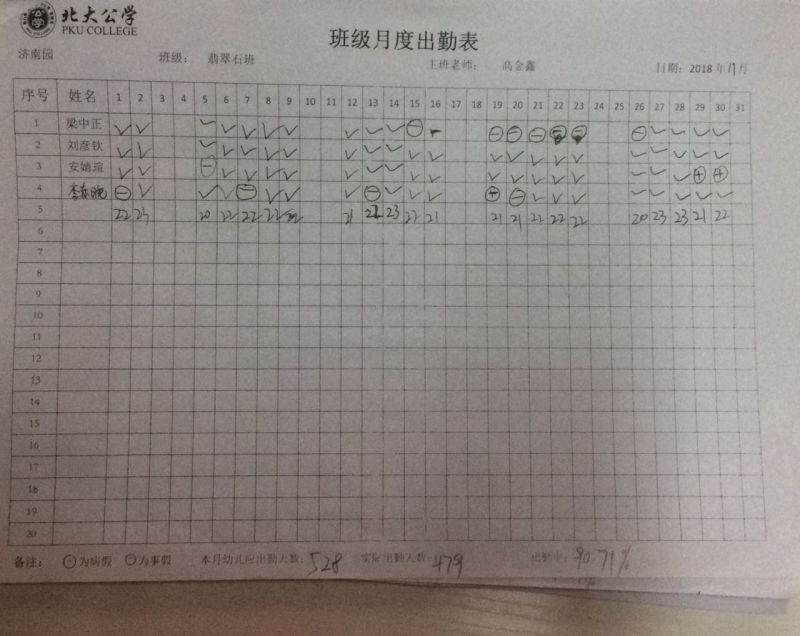 北大公学
PKU COLLEGE
班级月度出勤表
济南园 班级: 翡翠石班 主班老师: 高金鑫 日期: 2018年11月
序号 姓名 1 2 3 4 5 6 7 8 9 10 11 12 13 14 15 16 17 18 19 20 21 22 23 24 25 26 27 28 29 30 31
1 梁中正 ✓ ✓ ✓ ✓ ✓ ✓ ✓ ✓ ✓ ✓ ⊖ - ⊖ ⊖ ⊖ ⊖ ⊖ ⊖ ✓ ✓ ✓ ✓
2 刘彦钦 ✓ ✓ ✓ ✓ ✓ ✓ ✓ ✓ ✓ ✓ ✓ ✓ ✓ ✓ ✓ ✓ ✓ ✓ ✓ ✓ ✓ ✓
3 安婧瑄 ✓ ✓ ⊖ ✓ ✓ ✓ ✓ ✓ ✓ ✓ ✓ ✓ ✓ ✓ ✓ ✓ ✓ ✓ ✓ ✓ ⊕ ⊕
4 ⊖ ✓ ✓ ✓ ⊖ ✓ ✓ ✓ ⊖ ✓ ✓ ✓ ⊕ ⊖ ✓ ✓ ✓ ✓ ✓ ✓ ✓ ✓
5 22 23 20 22 22 22 21 23 22 21 21 21 22 22 22 20 23 23 21 22
6
7
8
9
10
11
12
13
14
15
16
17
18
19
20
备注: ⊕为病假 ⊖为事假 本月幼儿应出勤人数: 528 实际出勤人数: 479 出勤率: 90.71%